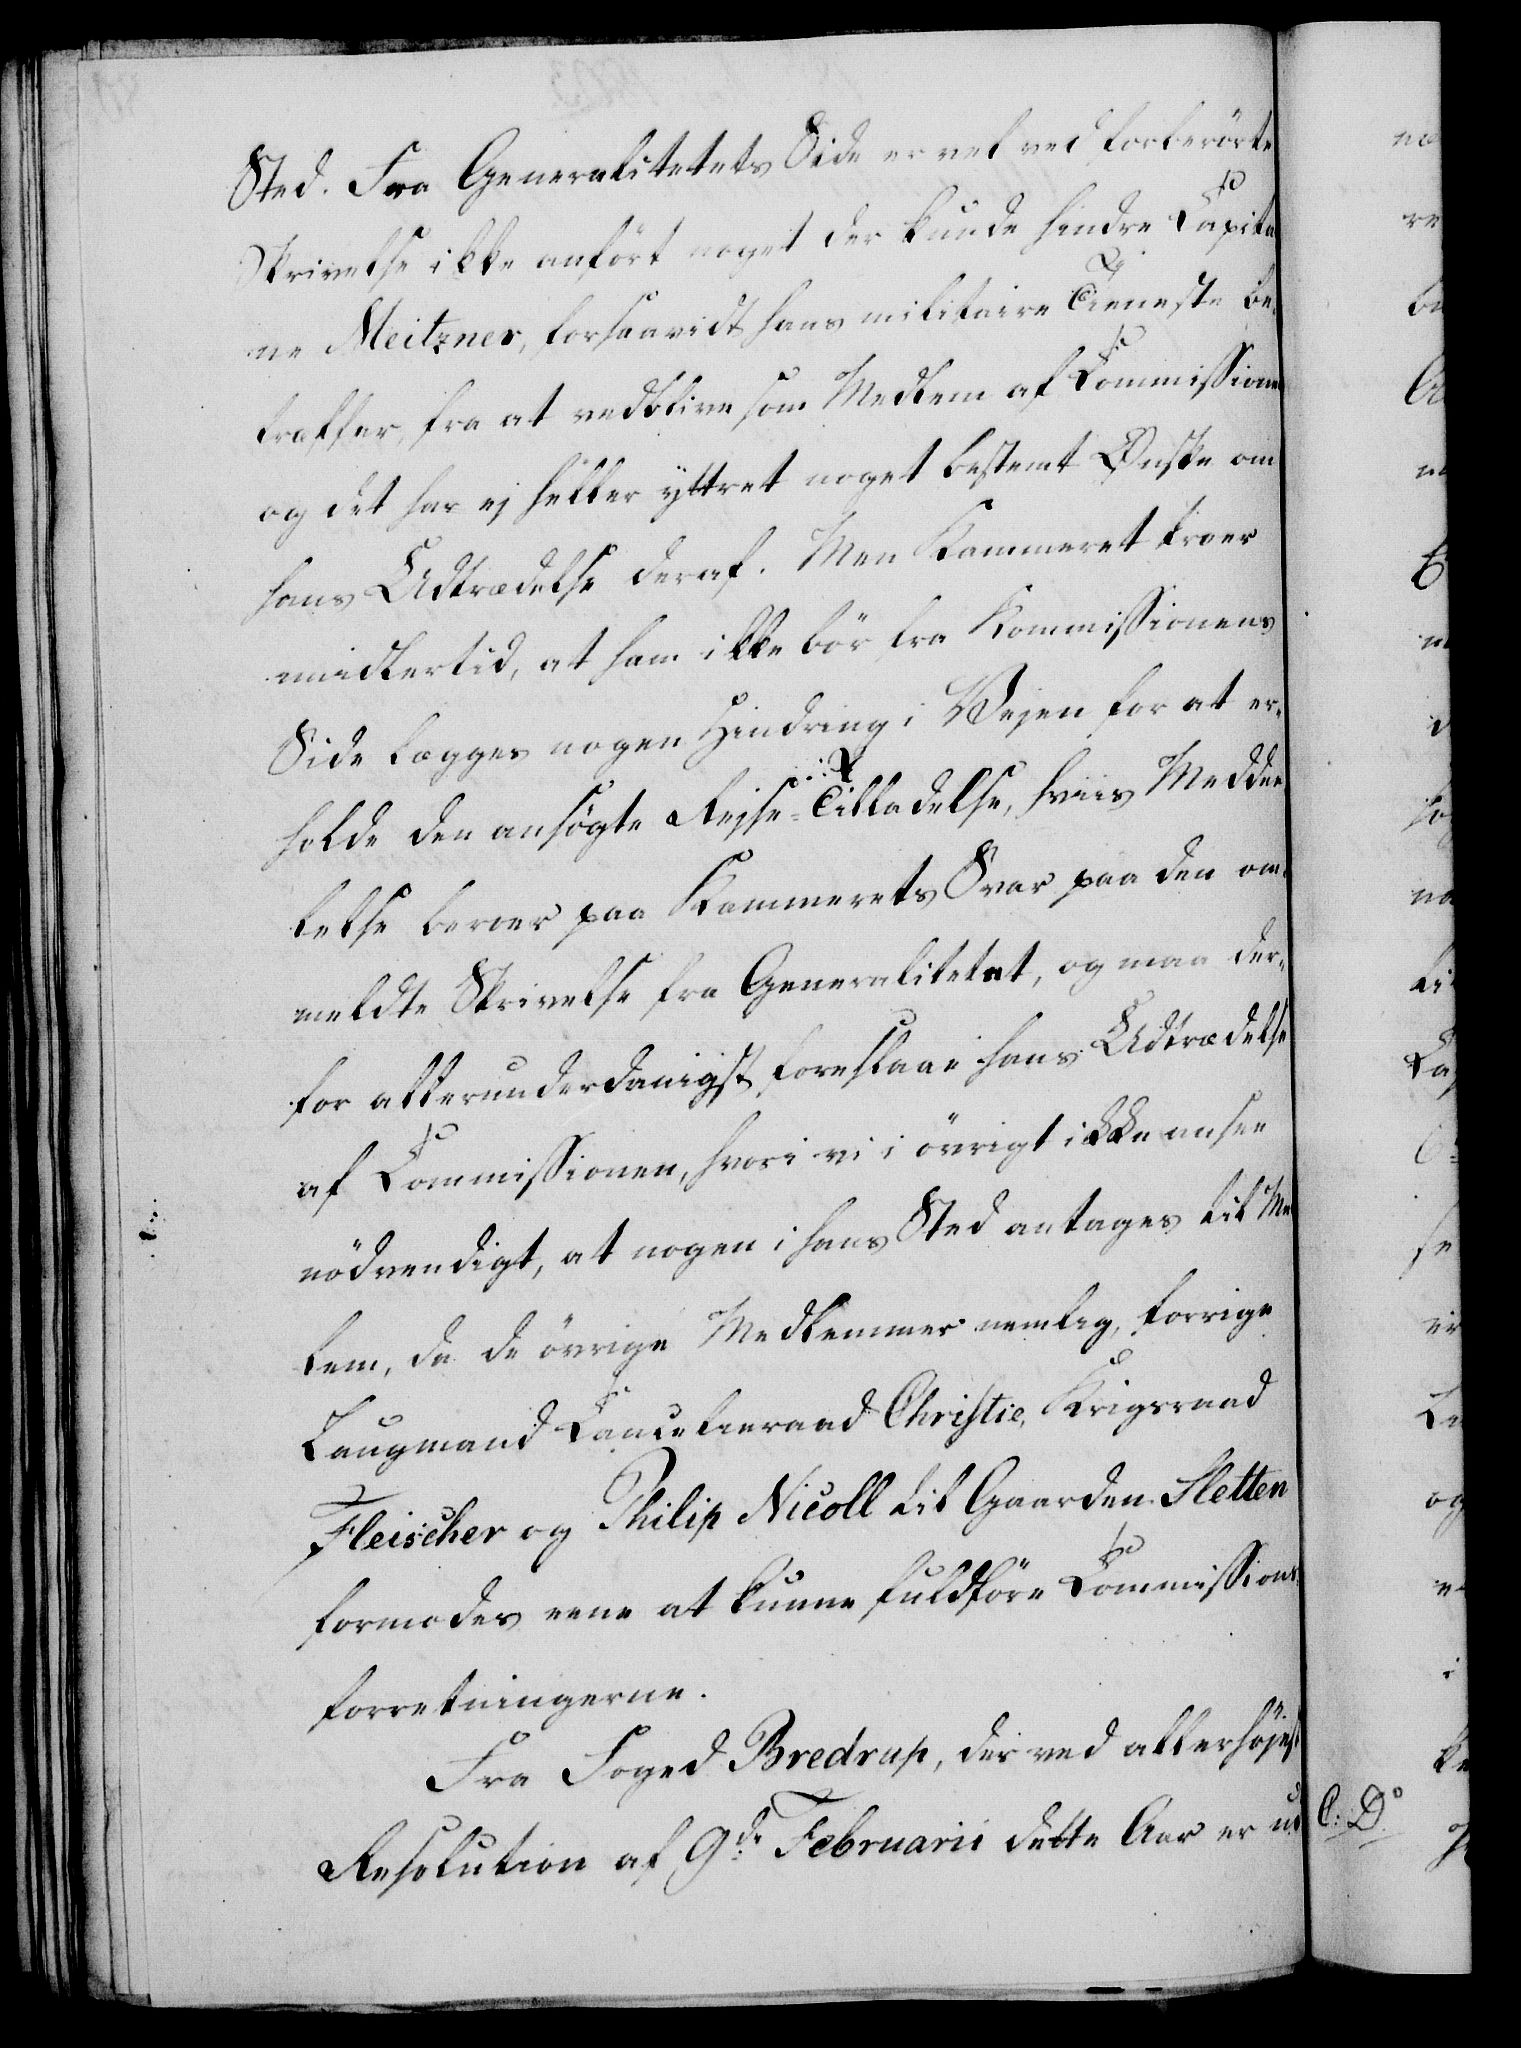 Sted. Fra Generalitetets Side er vel ved forberörte
Skrivelse ikke anfört noget der kunde hindre Capitai
ne Meitzner, forsaavidt hans militaire Tieneste be„
træffer, fra at vedblive som Medlem af Commissionen
og det har ej heller yttret noget bestemt Ønske om
hans Udtrædelse deraf. Men Kammeret troer
imidlertid, at ham ikke bör fra Kommissionens
Side lægges nogen Hindring i Vejen for at er„
holde den ansögte Rejse-Tilladelse, hviis Meddee
lelse beroer paa Kammerets Svar paa den om„
meldte Skrivelse fra Generalitetet, og maa der„
for allerunderdanigst foreslaae hans Udtrædelse
af Commissionen, hvori vi i övrigt ikke ansee
nödvendigt, at nogen i hans Sted antages til Me
lem, da de övrige Medlemmer nemlig, forrige
Laugmand Cancelieraad Christie, Krigsraad
Fleischer og Philip Nicoll til Gaarden Sletten
formodes ene at kunne fuldföre Commissions„
forretningerne.
Fra Foged Bredrup, der ved allerhöjest
Resolution af 9de Februarii dette Aar er ud
C: D°